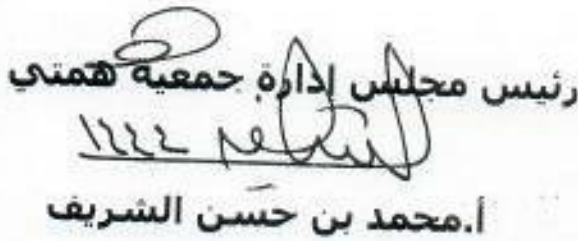 رئيس مجلس إدارة جمعية همتي
١٤٤٤
أ.محمد بن حسن الشريف